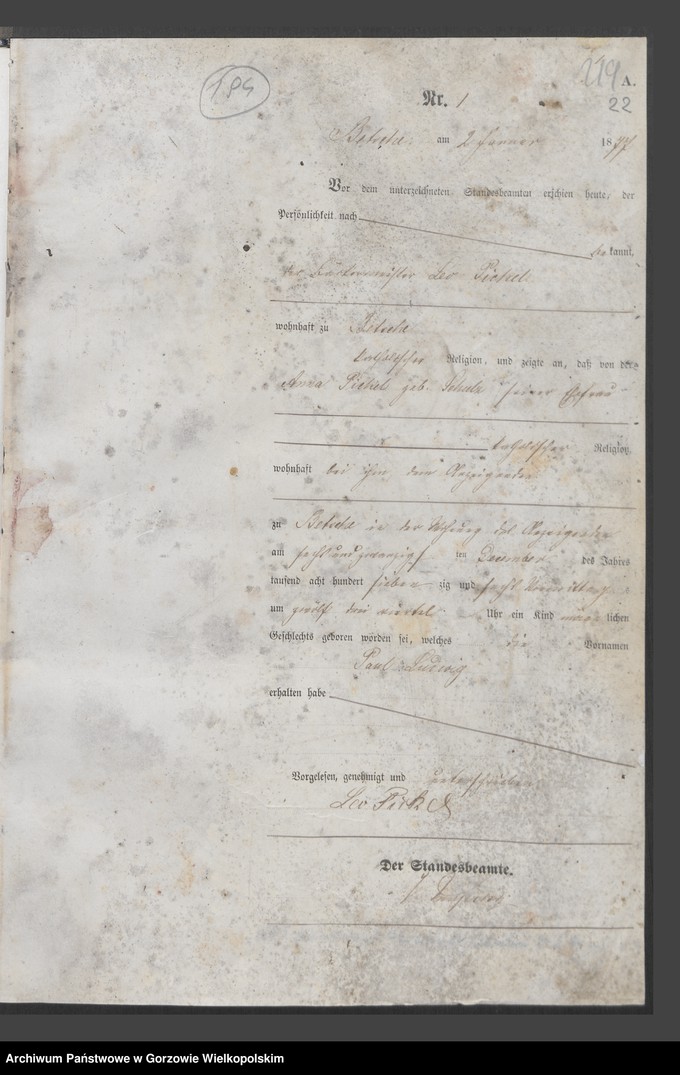 219 A.
22
Nr. 1
Betsche, am 2 Januar 1877
Vor dem unterzeichneten Standesbeamten erschien heute, der
Persönlichkeit nach
be kannt,
der Leo Pickel
wohnhaft zu Betsche
katholischer Religion, und zeigte an, daß von der
Anna Pickel geb. Schulz seiner Ehefrau
katholischer Religion,
wohnhaft bei ihm dem Anzeigenden
zu Betsche in der Wohnung des Anzeigenden
am sechsundzwanzigsten ten December des Jahres
tausend acht hundert sieben zig und sechs Vormittags
um zwölf drei viertel Uhr ein Kind männ lichen
Geschlechts geboren worden sei, welches die Vornamen
Paul Ludwig
erhalten habe
Vorgelesen, genehmigt und unterschrieben
Leo Pickel
Der Standesbeamte.
Archiwum Państwowe w Gorzowie Wielkopolskim